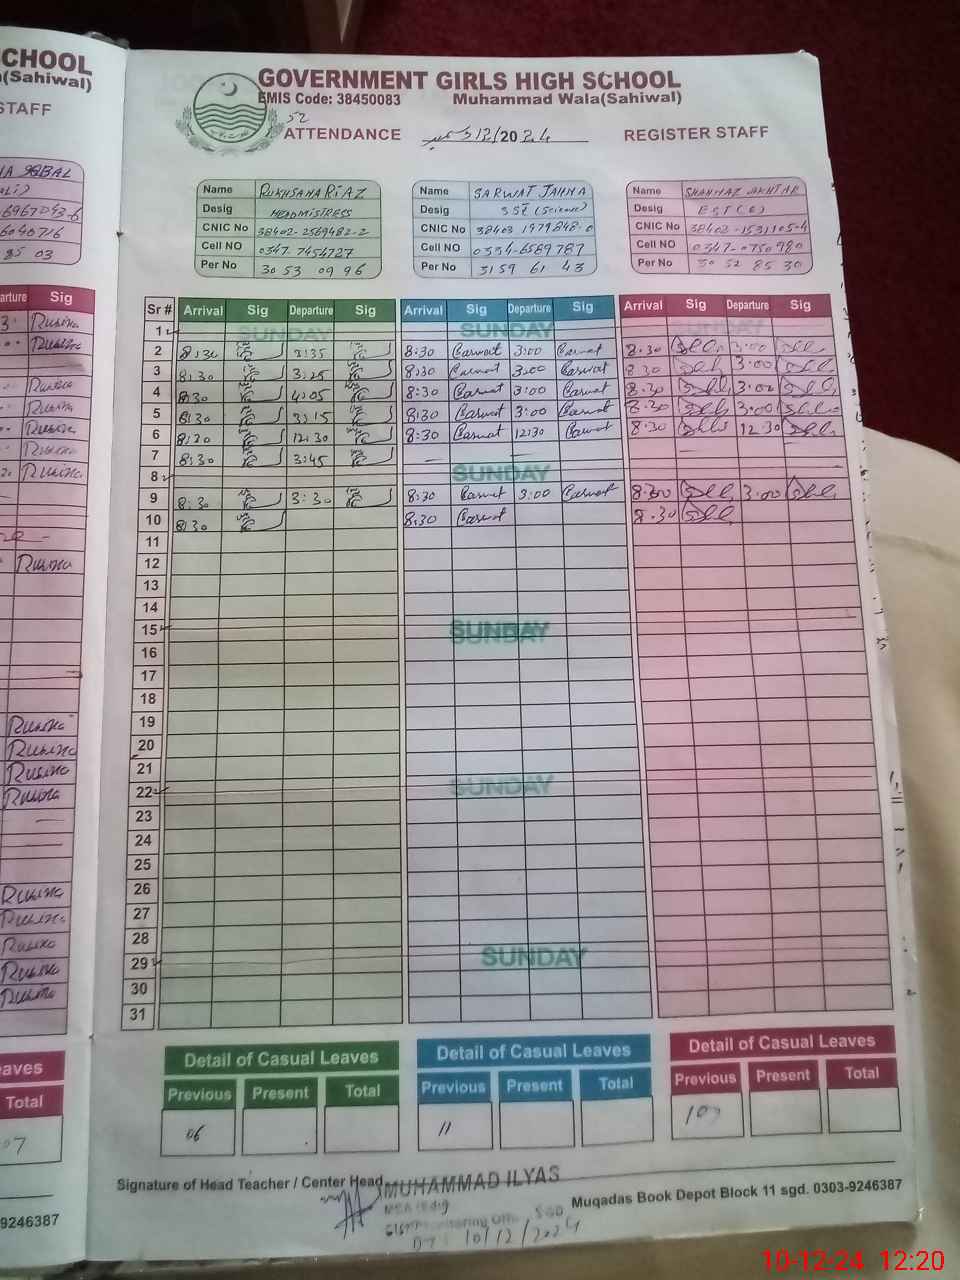 CHOOL
(Sahiwal)
STAFF
GOVERNMENT GIRLS HIGH SCHOOL
EMIS Code: 38450083 Muhammad Wala(Sahiwal)
52
ATTENDANCE دسمبر 12/2024 REGISTER STAFF
Name RUKHSANA RIAZ
Desig HEADMISTRESS
CNIC No 38402-2569482-2
Cell NO 0347-7454727
Per No 30 53 09 96
Name SARWAT JAHNA
Desig SSE (Science)
CNIC No 38403 1979848-0
Cell NO 0334-6589787
Per No 3159 61 43
Name SHAHNAZ AKHTAR
Desig EST(C)
CNIC No 38403-1531105-4
Cell NO 0347-0750790
Per No 30 52 85 30
Sr # Arrival Sig Departure Sig Arrival Sig Departure Sig Arrival Sig Departure Sig
1 SUNDAY SUNDAY SUNDAY
2 8:30 3:35 8:30 Sarwat 3:00 Sarwat 8:30 3:00
3 8:30 3:25 8:30 Sarwat 3:00 Sarwat 8:30 3:00
4 8:30 4:05 8:30 Sarwat 3:00 Sarwat 8:30 3:00
5 8:30 3:15 8:30 Sarwat 3:00 Sarwat 8:30 3:00
6 8:20 12:30 8:30 Sarwat 12:30 Sarwat 8:30 12:30
7 8:30 3:45 — — — —
8 SUNDAY
9 8:30 3:30 8:30 Sarwat 3:00 Sarwat 8:30 3:00
10 8:30 8:30 Sarwat 8:30
11
12
13
14
15 SUNDAY
16
17
18
19
20
21
22 SUNDAY
23
24
25
26
27
28
29 SUNDAY
30
31
Detail of Casual Leaves
Previous Present Total
06
Detail of Casual Leaves
Previous Present Total
11
Detail of Casual Leaves
Previous Present Total
Signature of Head Teacher / Center Head
MUHAMMAD ILYAS
MEA (Edu)
Distt Monitoring Office SGD
DT: 10/12/2024
Muqadas Book Depot Block 11 sgd. 0303-9246387
arture Sig
eaves
Total
07
9246387
10-12-24 12:20